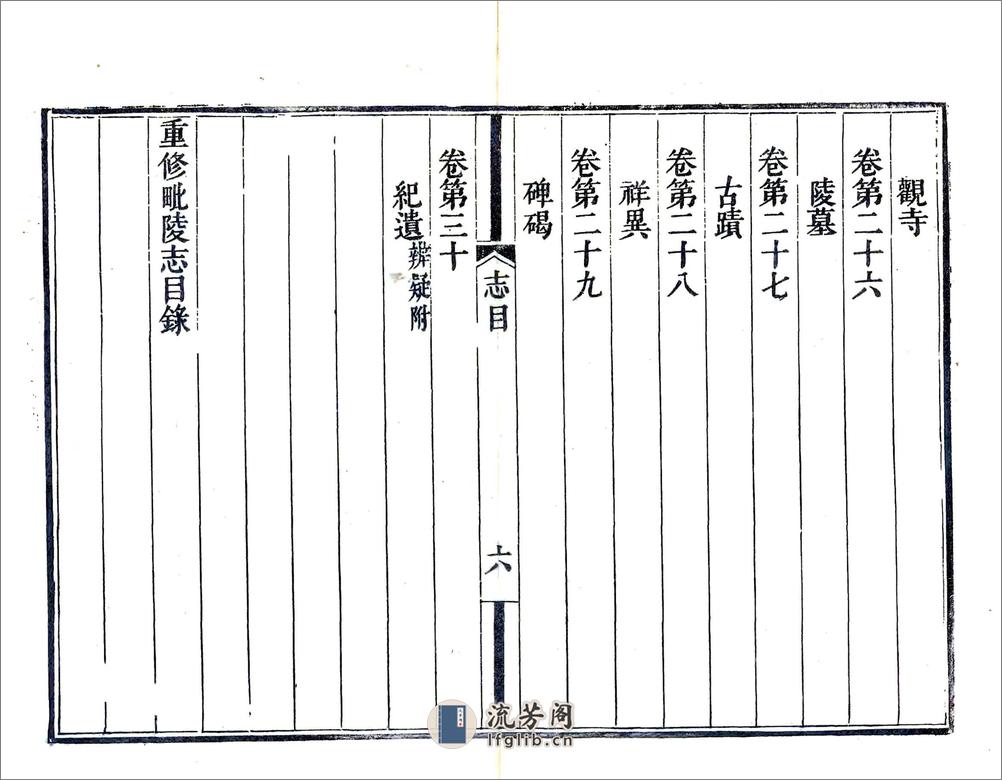 觀寺
卷第二十六
陵墓
卷第二十七
古蹟
卷第二十八
祥異
卷第二十九
碑碣
志目
六
卷第三十
紀遺辨疑附
重修毗陵志目錄
流芳阁
lfglib.cn